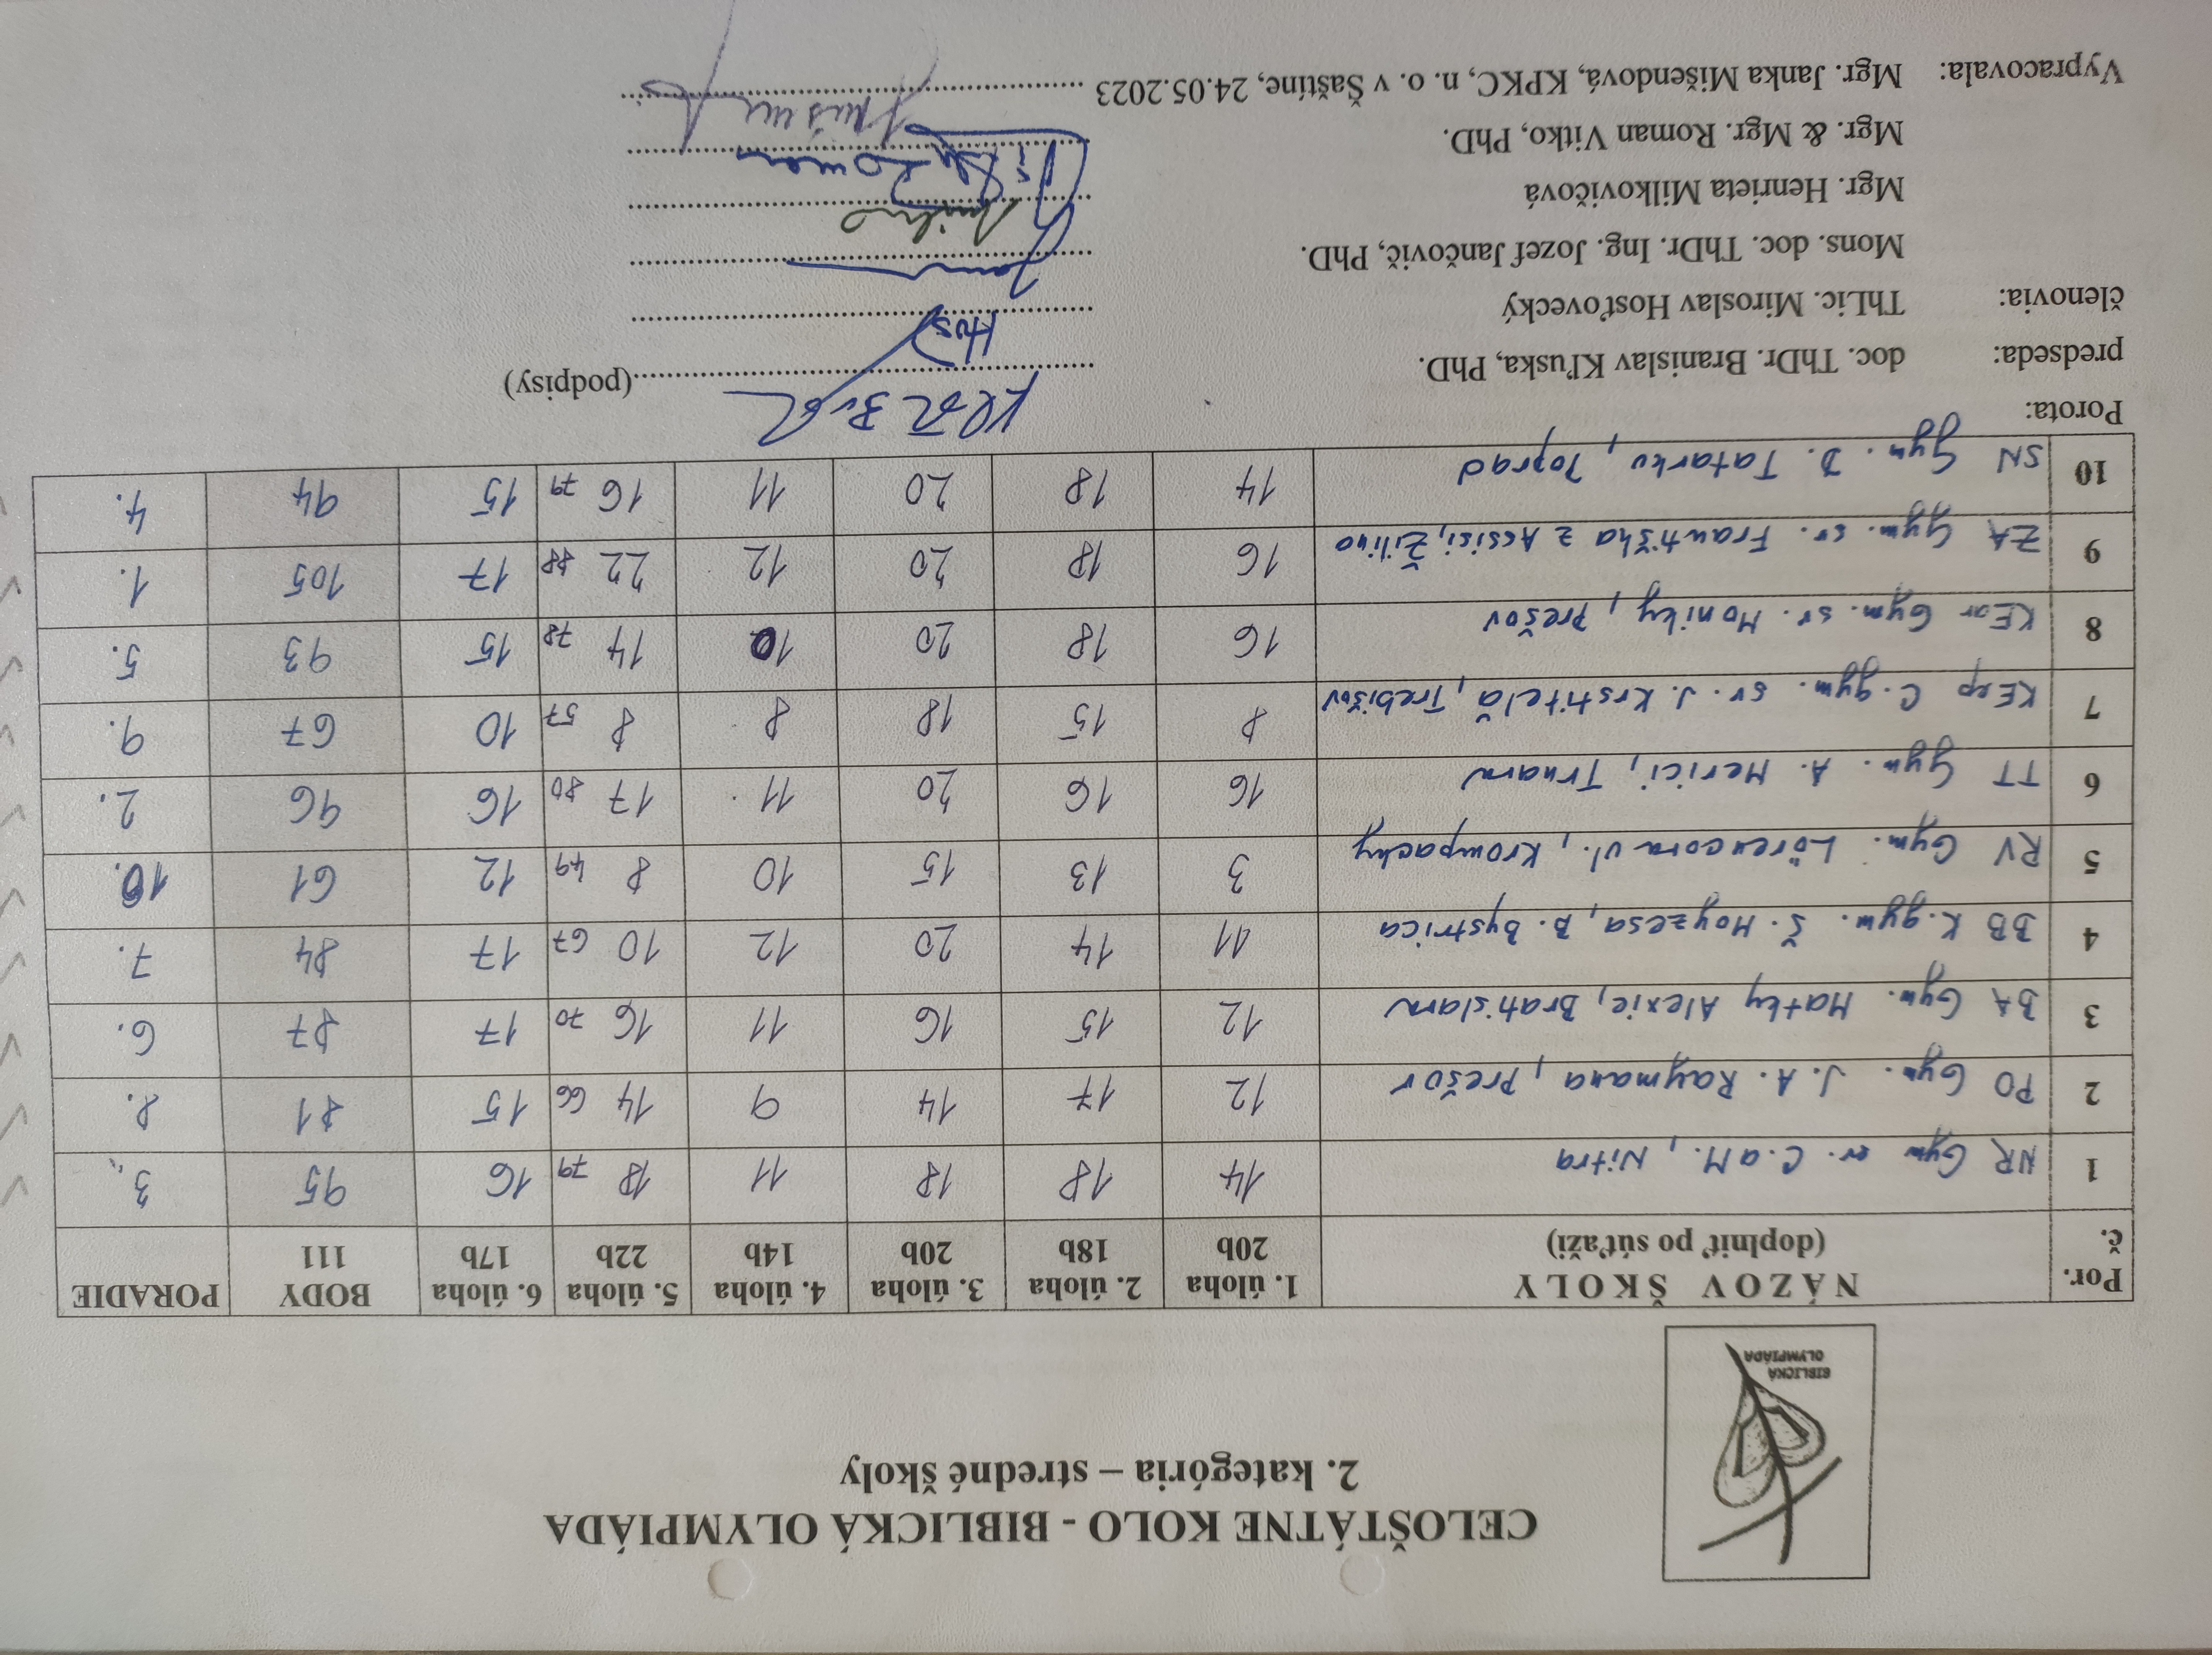 BIBLICKÁ
OLYMPIÁDA
CELOŠTÁTNE KOLO - BIBLICKÁ OLYMPIÁDA
2. kategória – stredné školy
Por. č. NÁZOV ŠKOLY (doplniť po súťaži) 1. úloha 20b 2. úloha 18b 3. úloha 20b 4. úloha 14b 5. úloha 22b 6. úloha 17b BODY 111 PORADIE
1 NR Gym sv. C.aM., Nitra 14 18 18 11 18 79 16 95 3.
2 PO Gym. J.A. Raymana, Prešov 12 17 14 9 14 66 15 81 8.
3 BA Gym. Matky Alexie, Bratislava 12 15 16 11 16 70 17 87 6.
4 BB K.gym. Š. Moyzesa, B. Bystrica 11 14 20 12 10 67 17 84 7.
5 RV Gym. Lörencova ul., Krompachy 3 13 15 10 8 49 12 61 10.
6 TT Gym. A. Merici, Trnava 16 16 20 11 17 80 16 96 2.
7 KEgp C.gym. sv. J. Krstiteľa, Trebišov 8 15 18 8 8 57 10 67 9.
8 KEar Gym. sv. Moniky, Prešov 16 18 20 10 14 78 15 93 5.
9 ZA Gym. sv. Františka z Assisi, Žilina 16 18 20 12 22 88 17 105 1.
10 SN Gym. D. Tatarku, Poprad 14 18 20 11 16 79 15 94 4.
Porota:
predseda: doc. ThDr. Branislav Kľuska, PhD. (podpisy)
členovia: ThLic. Miroslav Hosťovecký
Mons. doc. ThDr. Ing. Jozef Jančovič, PhD.
Mgr. Henrieta Milkovičová
Mgr. & Mgr. Roman Vitko, PhD.
Vypracovala: Mgr. Janka Mišendová, KPKC, n. o. v Šaštíne, 24.05.2023